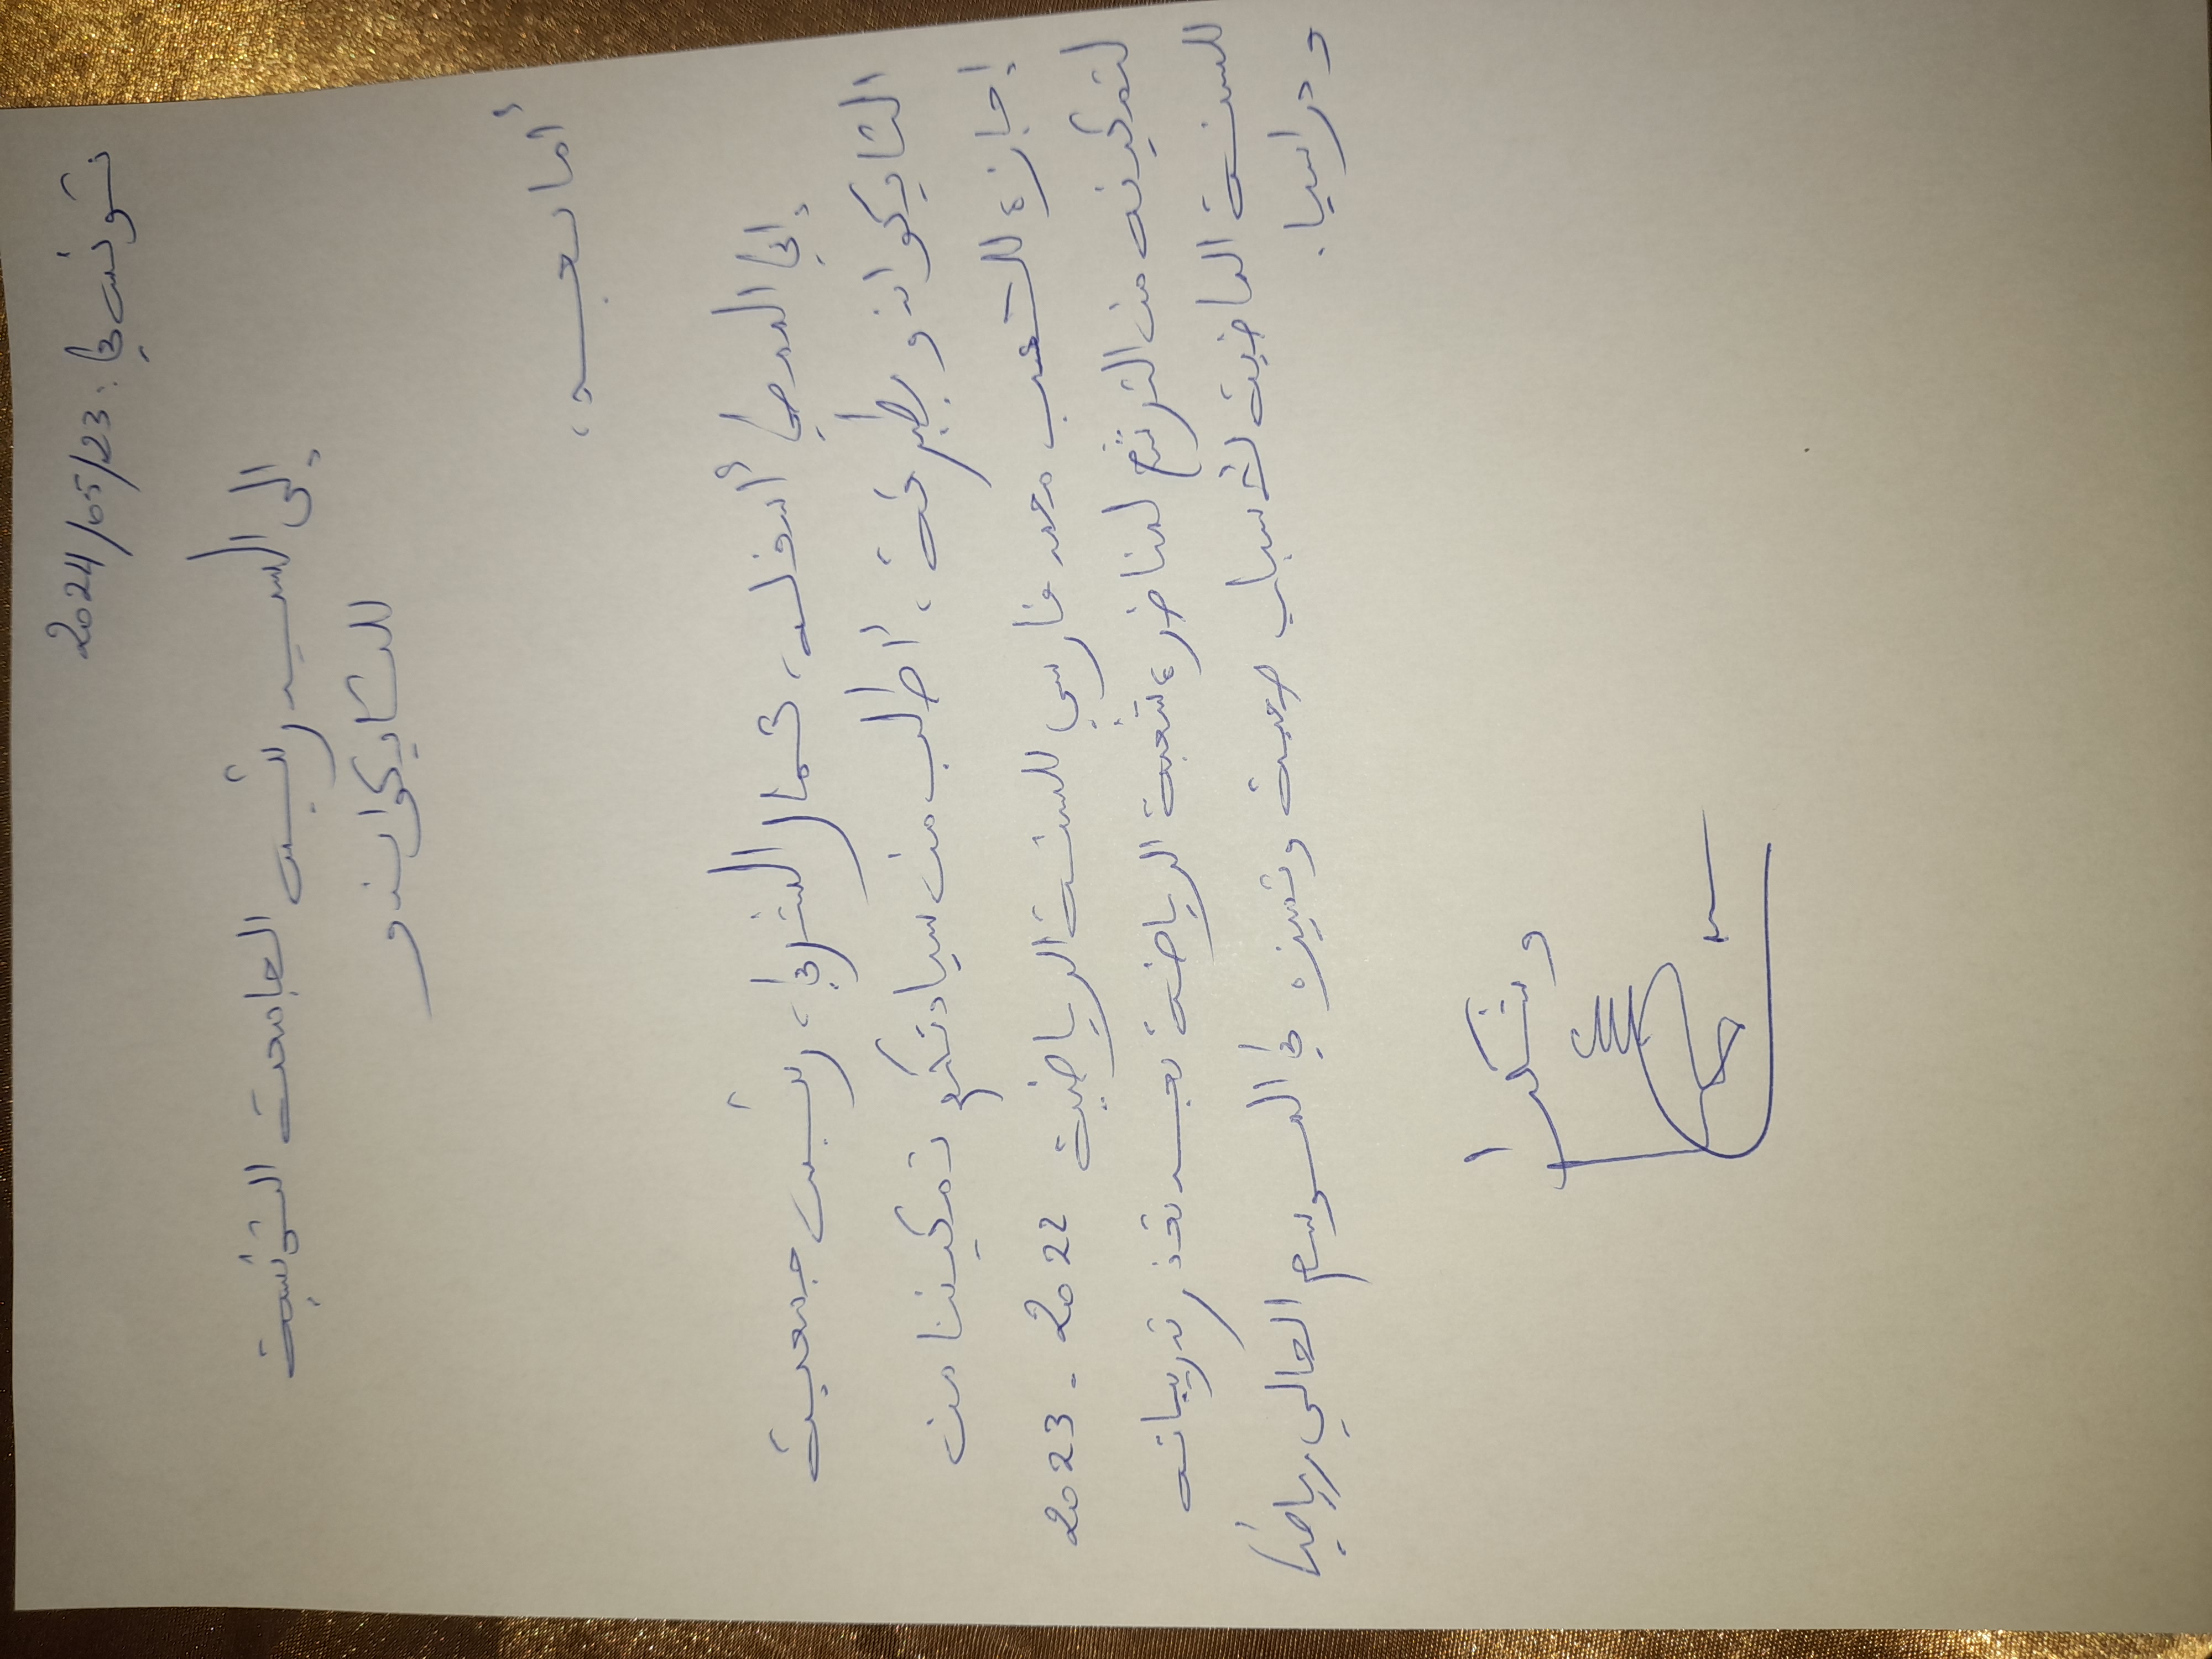 تونس في: 2024/05/23
إلى السيد رئيس الجامعة التونسية
للتايكواندو
أما بعد،
إني الممضي أسفله، كمال الشرفي، رئيس جمعية
التايكواندو بطبرقة، أطلب من سيادتكم تمكيننا من
إجازة للاعب محمد فارسي للسنة الرياضية 2022 - 2023
لتمكينه من الترشح لمناظرة شعبة الرياضة بعد تعذر تدريباته
للسنة الماضية لأسباب صحية وتميزه في الموسم الحالي رياضيا
ودراسيا.
وشكرا